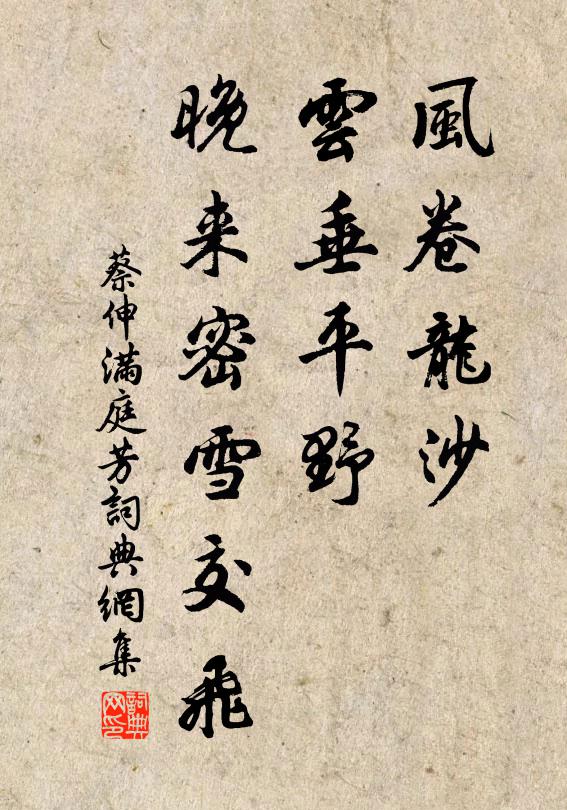 風卷龍沙
雲垂平野
晚来密雪交飛
蔡伸滿庭芳詞典網集
詞典
网印